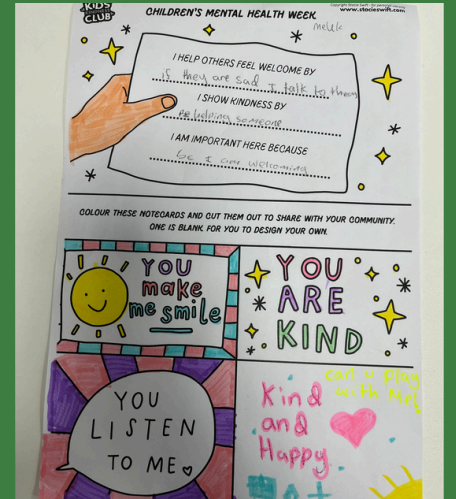 KIDS
CLUB
CHILDREN'S MENTAL HEALTH WEEK
www.stacieswift.com
I HELP OTHERS FEEL WELCOME BY
if they are sad I talk to them
I SHOW KINDNESS BY
helping someone
I AM IMPORTANT HERE BECAUSE
I am welcoming
COLOUR THESE NOTECARDS AND CUT THEM OUT TO SHARE WITH YOUR COMMUNITY.
ONE IS BLANK FOR YOU TO DESIGN YOUR OWN.
YOU
make
me smile
YOU
ARE
KIND
YOU
LISTEN
TO ME
can u play
with Me!
Kind
and
Happy